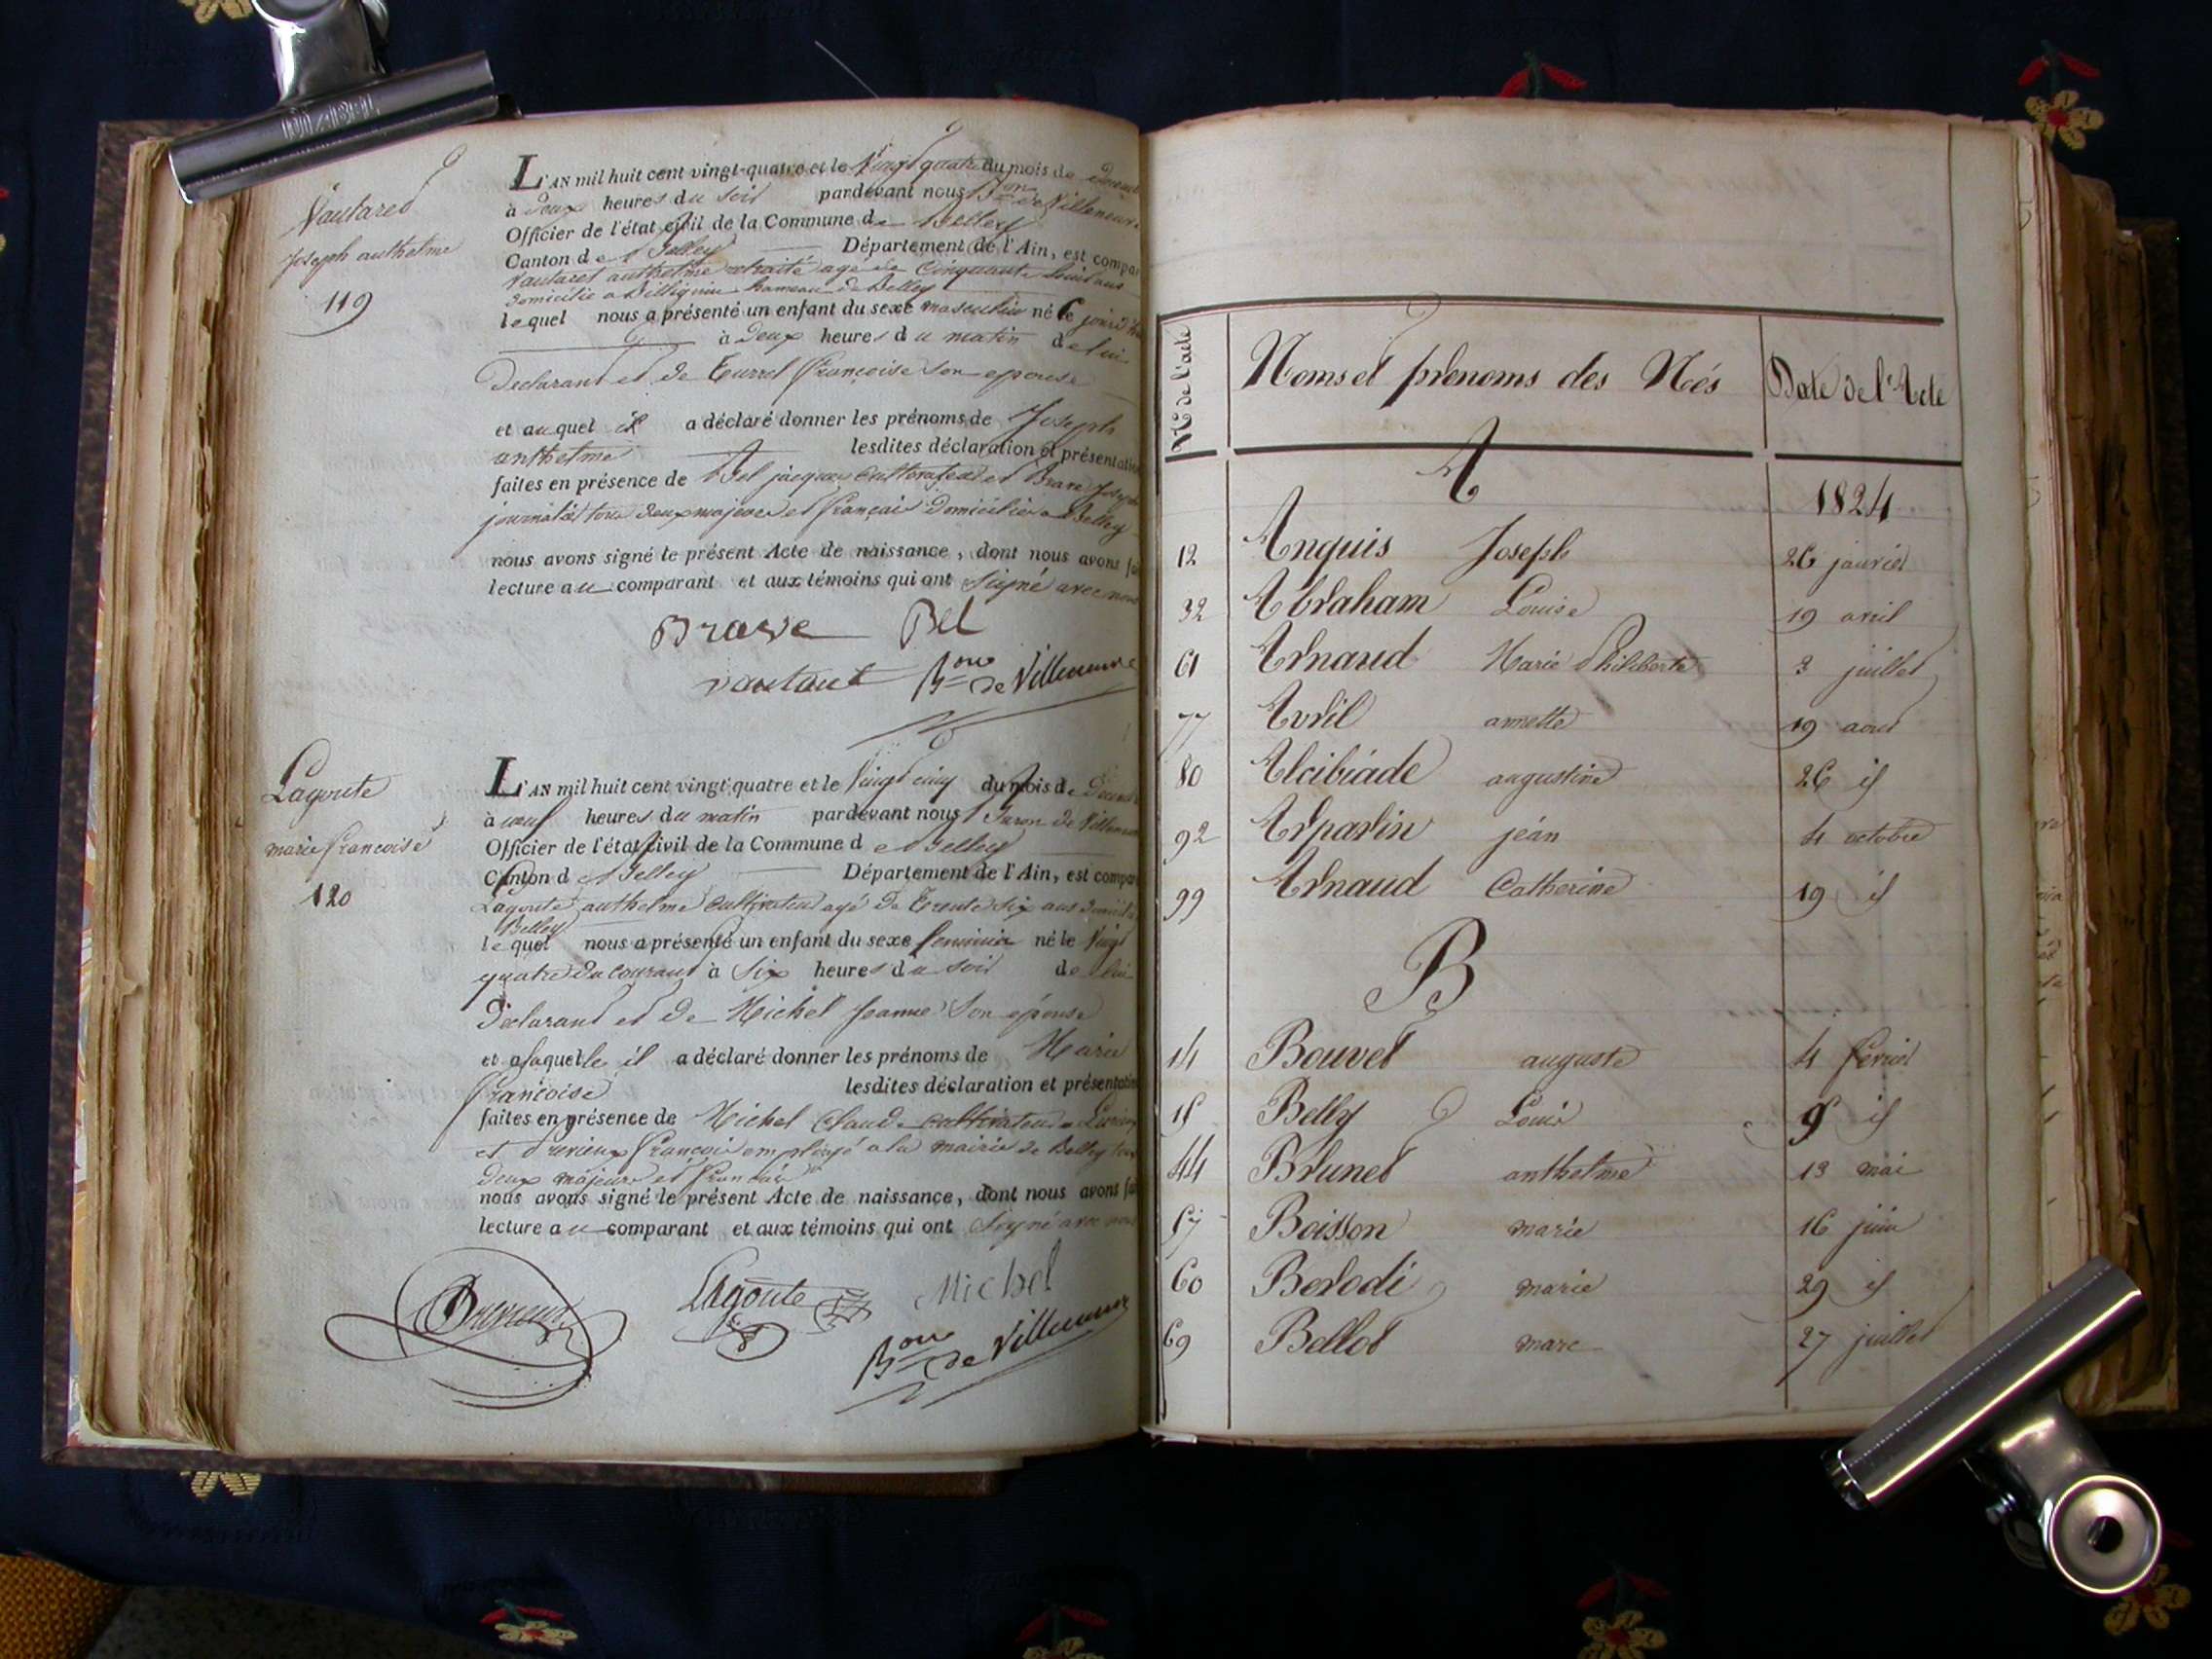 DIABEL
Vautaret
Joseph anthelme
119
L'AN mil huit cent vingt-quatre et le Vingt quatre du mois de
à deux heures du soir pardevant nous Bon de Villeneuve
Officier de l'état civil de la Commune de Belley
Canton de Belley Département de l'Ain, est compa
Vautaret anthelme retraité agé de Cinquante huit ans
domicilié a Billignin hameau de Belley
lequel nous a présenté un enfant du sexe masculin né le
à deux heures du matin de lui
Declarant et de Turrel françoise Son epouse
et auquel il a déclaré donner les prénoms de Joseph
anthelme lesdites déclaration et présentation
faites en présence de Bel jacques Cultivateur et Brave Joseph
journalier tous deux majeurs et français domiciliés a Belley
nous avons signé le présent Acte de naissance, dont nous avons fai
lecture au comparant et aux témoins qui ont Signé avec nous
Brave Bel
vautaret Bon de Villeneuve
Lagoute
marie francoise
120
L'AN mil huit cent vingt-quatre et le Vingt cinq du mois de
à neuf heures du matin pardevant nous Baron de Villeneuve
Officier de l'état civil de la Commune de Belley
Canton de Belley Département de l'Ain, est compa
Lagoute anthelme Cultivateur agé de Trente six ans domicilié
Belley
lequel nous a présenté un enfant du sexe feminin né le Vingt
quatre du Courant à Six heures du soir de lui
Declarant et de Michel jeanne Son épouse
et a laquelle il a déclaré donner les prénoms de Marie
francoise lesdites déclaration et présentation
faites en présence de Michel Claude cultivateur a
et françois employé a la mairie de Belley tous
deux majeurs et français
nous avons signé le présent Acte de naissance, dont nous avons fai
lecture au comparant et aux témoins qui ont Signé avec nous
Lagoute Michel
Bon de Villeneuve
No de l'acte Noms et prénoms des Nés Date de l'Acte
A 1824
12 Anquis Joseph 26 janvier
32 Abraham Louise 19 avril
61 Arnaud Marie Philiberte 3 juillet
77 Avril annette 19 aout
80 Alcibiade augustine 26 id
92 Arparin jean 4 octobre
99 Arnaud Catherine 19 id
B
14 Bouvet auguste 4 février
15 Belly Louis 9 id
44 Brunet anthelme 13 mai
57 Boisson marie 16 juin
60 Berodi marie 29 id
69 Bellot marc 27 juillet